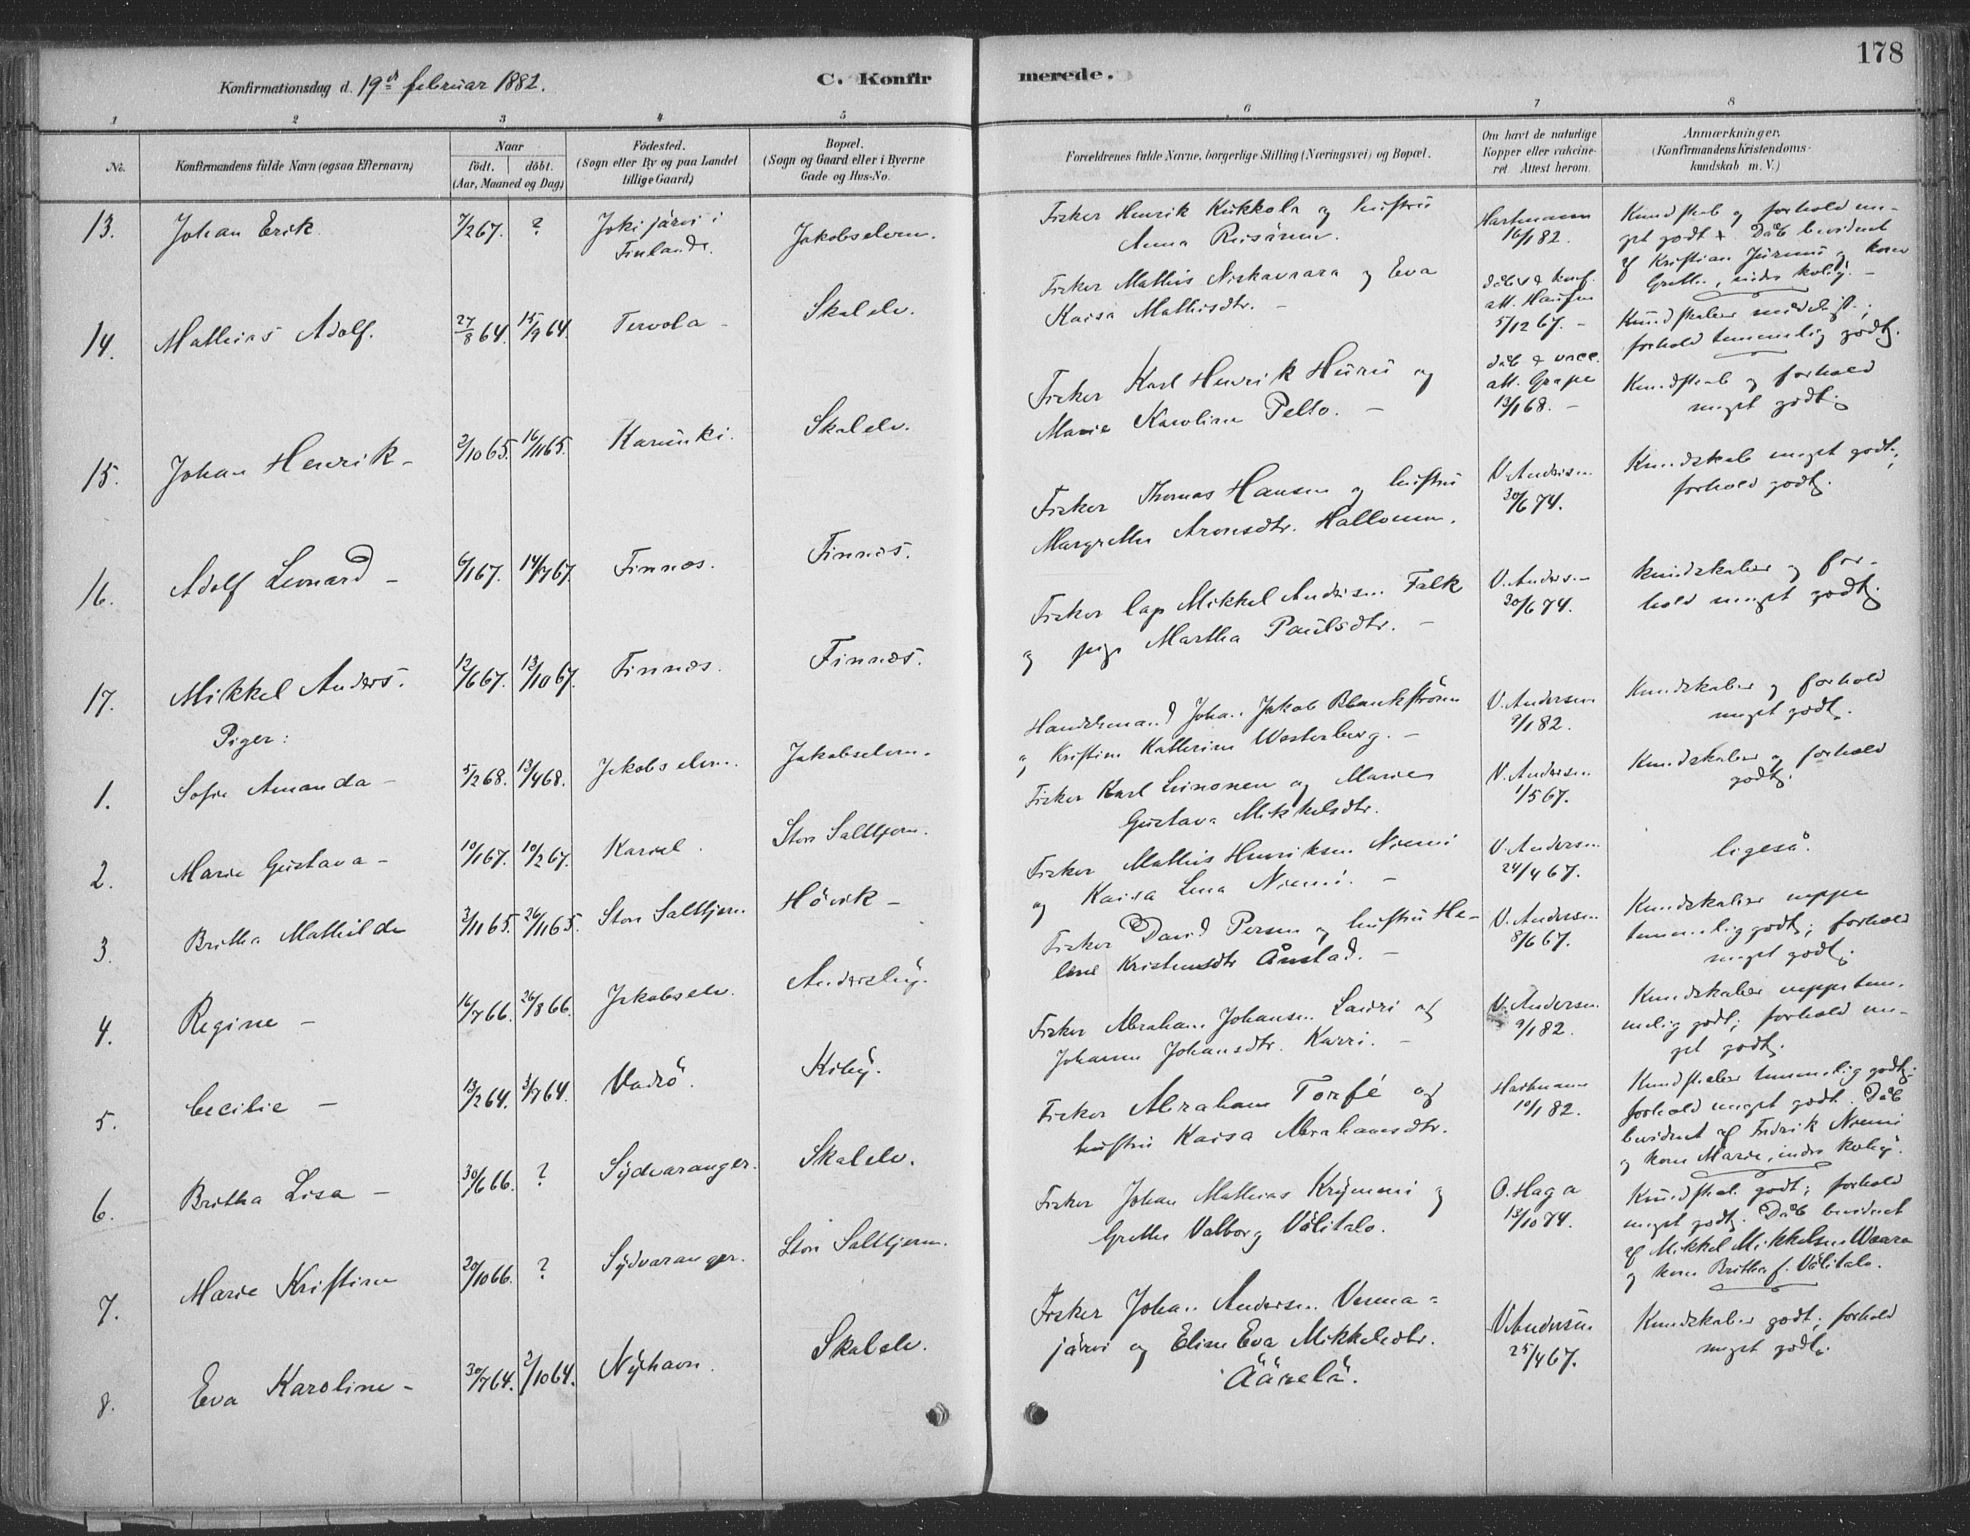 178
Konfirmationsdag d. 19de februar 1882.
C. Konfirmerede.
1 2 3 4 5 6 7 8
No.
Konfirmandens fulde Navn (ogsaa Efternavn)
Naar
födt. döbt.
(Aar, Maaned og Dag)
Födested.
(Sogn eller By og paa Landet
tillige Gaard)
Bopæl.
(Sogn og Gaard eller i Byerne
Gade og Hus-No.
Forældrenes fulde Navne, borgerlige Stilling (Næringsvei) og Bopæl.
Om havt de naturlige
Kopper eller vakcine-
ret Attest herom.
Anmærkninger.
(Konfirmandens Kristendoms-
kundskab m. V.)
13. Johan Erik 7/2 67. ? Jokijärvi i
Finland. Jakobselven.
Fisker Henrik Kukkola og hustru
Anna
Hartmann
16/1 82.
Kundskab og forhold me-
get godt. Dåb bevidnet
af Kristian og kone
Grethe, indre kolby.
14. Mathias Adolf. 27/8 64. 15/9 64. Tervola - Skalelv.
Fisker Mathis Niskavaara og Eva
Kaisa Mathisdtr. -
dåb & konf.
att. Hansen
5/12 67. -
Kundskaber middelgt.;
forhold temmelig godt.
15. Johan Henrik - 2/10 65. 16/11 65. Karunki. Skalelv.
Fisker Karl Henrik Huru og
Marie Karoline Pello. -
dåb & vacc.
att. Grape
13/1 68. -
Kundskab og forhold
meget godt.
16. Adolf Leonard - 6/1 67. 14/7 67. Finnæs. Finnæs.
Fisker Thomas Hansen og hustru
Margrethe Aronsdtr. Hallonen.
V. Andersen
30/6 74.
Kundskab meget godt;
forhold godt.
17. Mikkel Anders. 12/6 67. 13/10 67. Finnæs. Finnæs.
Fisker lap Mikkel Andersen Falk
og pige Martha Paulsdtr. -
V. Andersen
30/6 74.
kundskaber og for-
hold meget godt.
Piger:
1. Sofie Amanda - 5/2 68. 13/4 68. Jakobselven. Jakobselven.
Handelsmand Johan Jakob Blankström
og Kristine Kathrine Westerberg. -
V. Andersen
9/1 82.
Kundskaber og forhold
meget godt.
2. Marie Gustava - 10/1 67. 10/2 67. Karvel. Stor Saltjern.
Fisker Karl Leinonen og Marie
Gustava Mikkelsdtr.
V. Andersen
1/5 67.
Kundskaber og forhold
godt.
3. Britha Mathilde 3/11 65. 26/11 65. Stor Saltjern Hövik -
Fisker Mathis Henriksen Niemi
og Kaisa Lena Niemi. -
V. Andersen
24/4 67.
ligeså.
4. Regine - 16/7 66. 26/8 66. Jakobselv. Andersby.
Fisker David Persen og hustru He-
lene Kristensdtr Ånstad. -
V. Andersen
8/6 67.
Kundskaber neppe
temmelig godt; forhold
meget godt.
5. Cecilie - 13/2 64. 3/7 64. Vadsö. Kiby.
Fisker Abraham Johansen Lauri og
Johanne Johansdtr. Karri. -
V. Andersen
9/1 82.
Kundskaber neppe tem-
melig godt; forhold me-
get godt.
6. Britha Lisa - 30/6 66. ? Sydvaranger. Skalelv.
Fisker Abraham Torfé og
hustru Kaisa Abrahamsdtr.
Hartmann
10/1 82.
Kundskaber temmelig godt;
forhold meget godt. Dåb
bevidnet af Fredrik Niemi
og kone Marie, indre kolby.
7. Marie Kristine 20/10 66. ? Sydvaranger. Stor Saltjern.
Fisker Johan Mathias Krymmi og
Grethe Valborg Välitalo.
O. Haga
13/10 74.
Kundskab godt; forhold
meget godt. Dåb bevidnet
af Mikkel Mikkelsen Waara
og kone Britha f. Välitalo.
8. Eva Karoline - 30/7 64. 2/10 64. Nyhavn. Skalelv.
Fisker Johan Andersen Venna=
järvi og Eline Eva Mikkelsdtr.
Äärelä.
V. Andersen
25/4 67.
Kundskaber godt; forhold
meget godt.